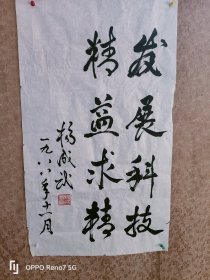 发展科技
精益求精
杨成武
一九八八年十一月
OPPO Reno7 5G